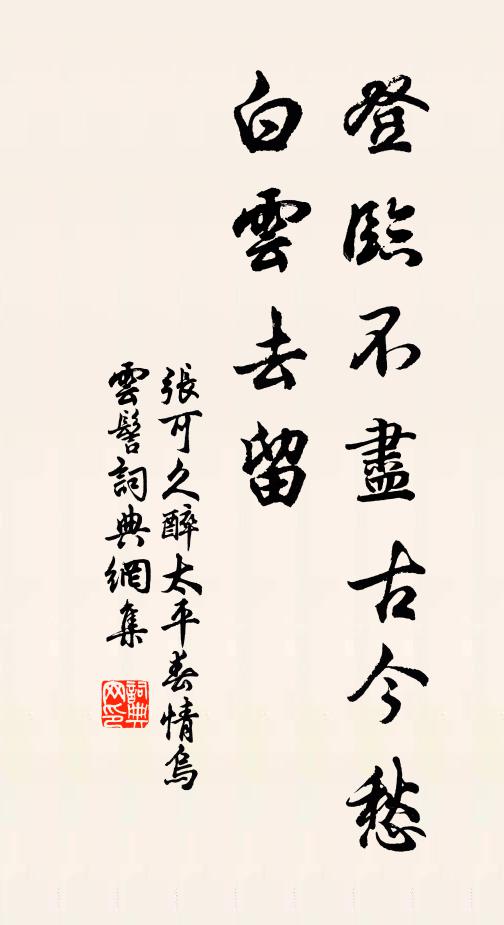 登臨不盡古今愁
白雲去留
張可久醉太平春情烏
雲髻詞典網集
詞典
网印